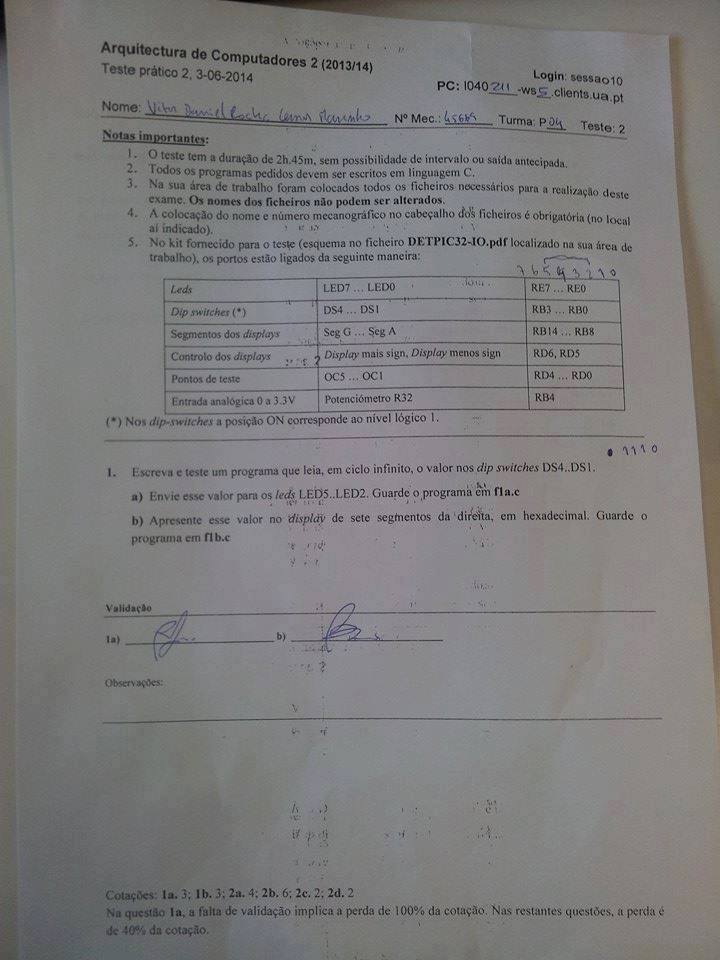 Arquitectura de Computadores 2 (2013/14)
Teste prático 2, 3-06-2014
Login: sessao10
PC: l040211-ws5.clients.ua.pt
Nome: Vitor Daniel Rocha Marinho Nº Mec.: Turma: P04 Teste: 2
Notas importantes:
1. O teste tem a duração de 2h.45m, sem possibilidade de intervalo ou saída antecipada.
2. Todos os programas pedidos devem ser escritos em linguagem C.
3. Na sua área de trabalho foram colocados todos os ficheiros necessários para a realização deste
exame. Os nomes dos ficheiros não podem ser alterados.
4. A colocação do nome e número mecanográfico no cabeçalho dos ficheiros é obrigatória (no local
aí indicado).
5. No kit fornecido para o teste (esquema no ficheiro DETPIC32-IO.pdf localizado na sua área de
trabalho), os portos estão ligados da seguinte maneira:
7 6 5 4 3 2 1 0
Leds LED7 ... LED0 RE7 ... RE0
Dip switches (*) DS4 ... DS1 RB3 ... RB0
Segmentos dos displays Seg G ... Seg A RB14 ... RB8
Controlo dos displays Display mais sign, Display menos sign RD6, RD5
Pontos de teste OC5 ... OC1 RD4 ... RD0
Entrada analógica 0 a 3.3V Potenciómetro R32 RB4
(*) Nos dip-switches a posição ON corresponde ao nível lógico 1.
1110
1. Escreva e teste um programa que leia, em ciclo infinito, o valor nos dip switches DS4..DS1.
a) Envie esse valor para os leds LED5..LED2. Guarde o programa em f1a.c
b) Apresente esse valor no display de sete segmentos da direita, em hexadecimal. Guarde o
programa em f1b.c
Validação
1a) b)
Observações:
Cotações: 1a. 3; 1b. 3; 2a. 4; 2b. 6; 2c. 2; 2d. 2
Na questão 1a, a falta de validação implica a perda de 100% da cotação. Nas restantes questões, a perda é
de 40% da cotação.